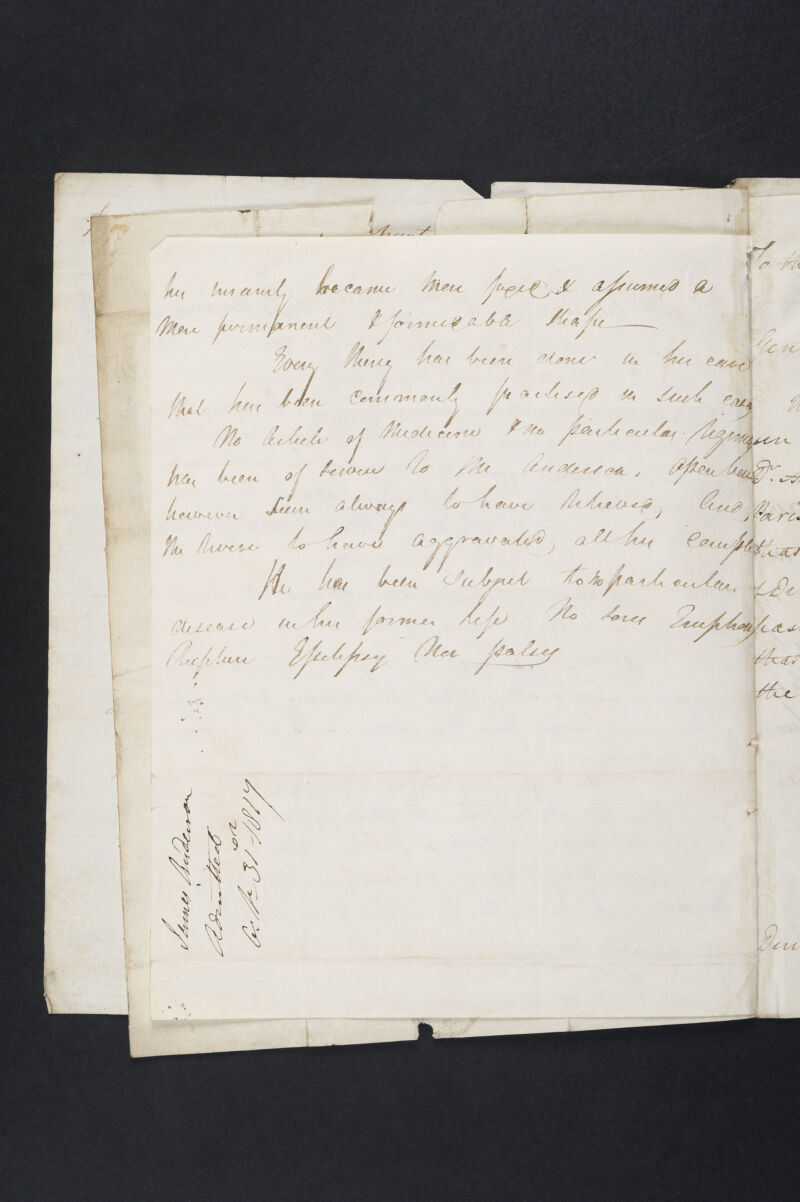 his insanity became more fixed & assumed a
more permanent & formidable shape —
Every thing has been done in his case
that has been commonly practised in such cases
No Article of Medicine & no particular Regimen
has been of service to Mr Anderson. Open
however seem always to have relieved, And,
the reverse to have aggravated, all his
He has been subject to no particular
disease in his former life No
Epilepsy Nor palsy
James Anderson
Admitted on
Octr 31st 1817
To the
Gen
Dr.
Paris
that
& Di
pas
that
the